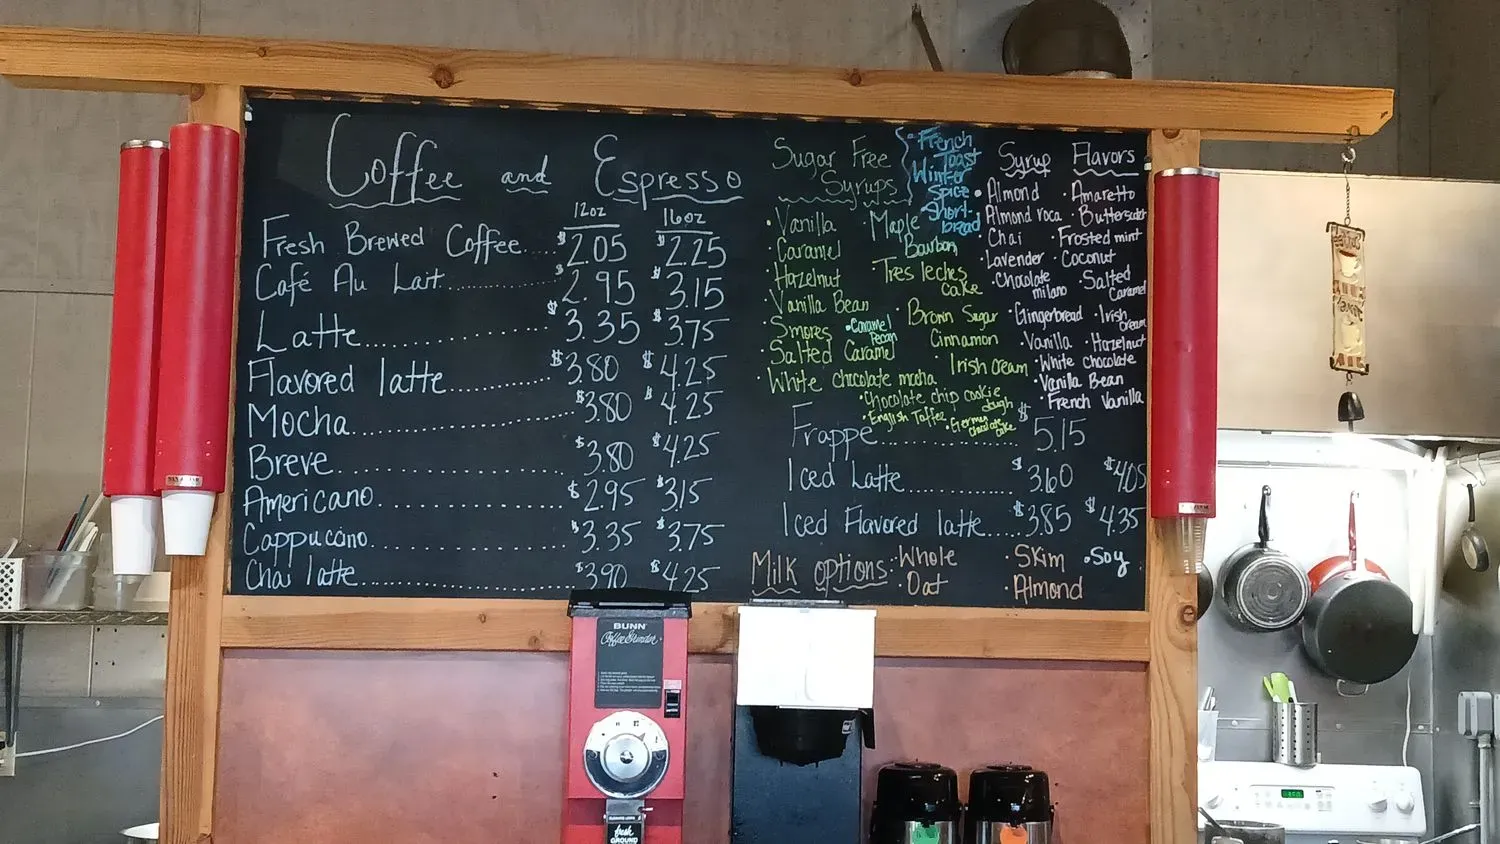 Coffee and Espresso
12oz 16oz
Fresh Brewed Coffee.... $2.05 $2.25
Café Au Lait.......... $2.95 $3.15
Latte.................. $3.35 $3.75
Flavored latte.......... $3.80 $4.25
Mocha.................. $3.80 $4.25
Breve.................. $3.80 $4.25
Americano............... $2.95 $3.15
Cappuccino.............. $3.35 $3.75
Chai latte.............. $3.90 $4.25
Sugar Free
Syrups
French
Toast
Winter
Spice
Short-
bread
· Vanilla · Maple
Bourbon
· Caramel
· Hazelnut · Tres leches
cake
· Vanilla Bean · Brown Sugar
Cinnamon
· Smores · Caramel
Pecan
· Salted Caramel · Irish cream
· White chocolate mocha
· Chocolate chip cookie
dough
· English Toffee · German
chocolate
cake
Syrup Flavors
· Almond · Amaretto
· Almond roca · Butterscotch
· Chai · Frosted mint
· Lavender · Coconut
· Chocolate
milano · Salted
Caramel
· Gingerbread · Irish
cream
· Vanilla · Hazelnut
· White chocolate
· Vanilla Bean
· French Vanilla
Frappe.................. $5.15
Iced Latte.............. $3.60 $4.05
Iced Flavored latte..... $3.85 $4.35
Milk options: · Whole · Skim · Soy
· Oat · Almond
BUNN
Coffee Grinder
fresh
GROUND